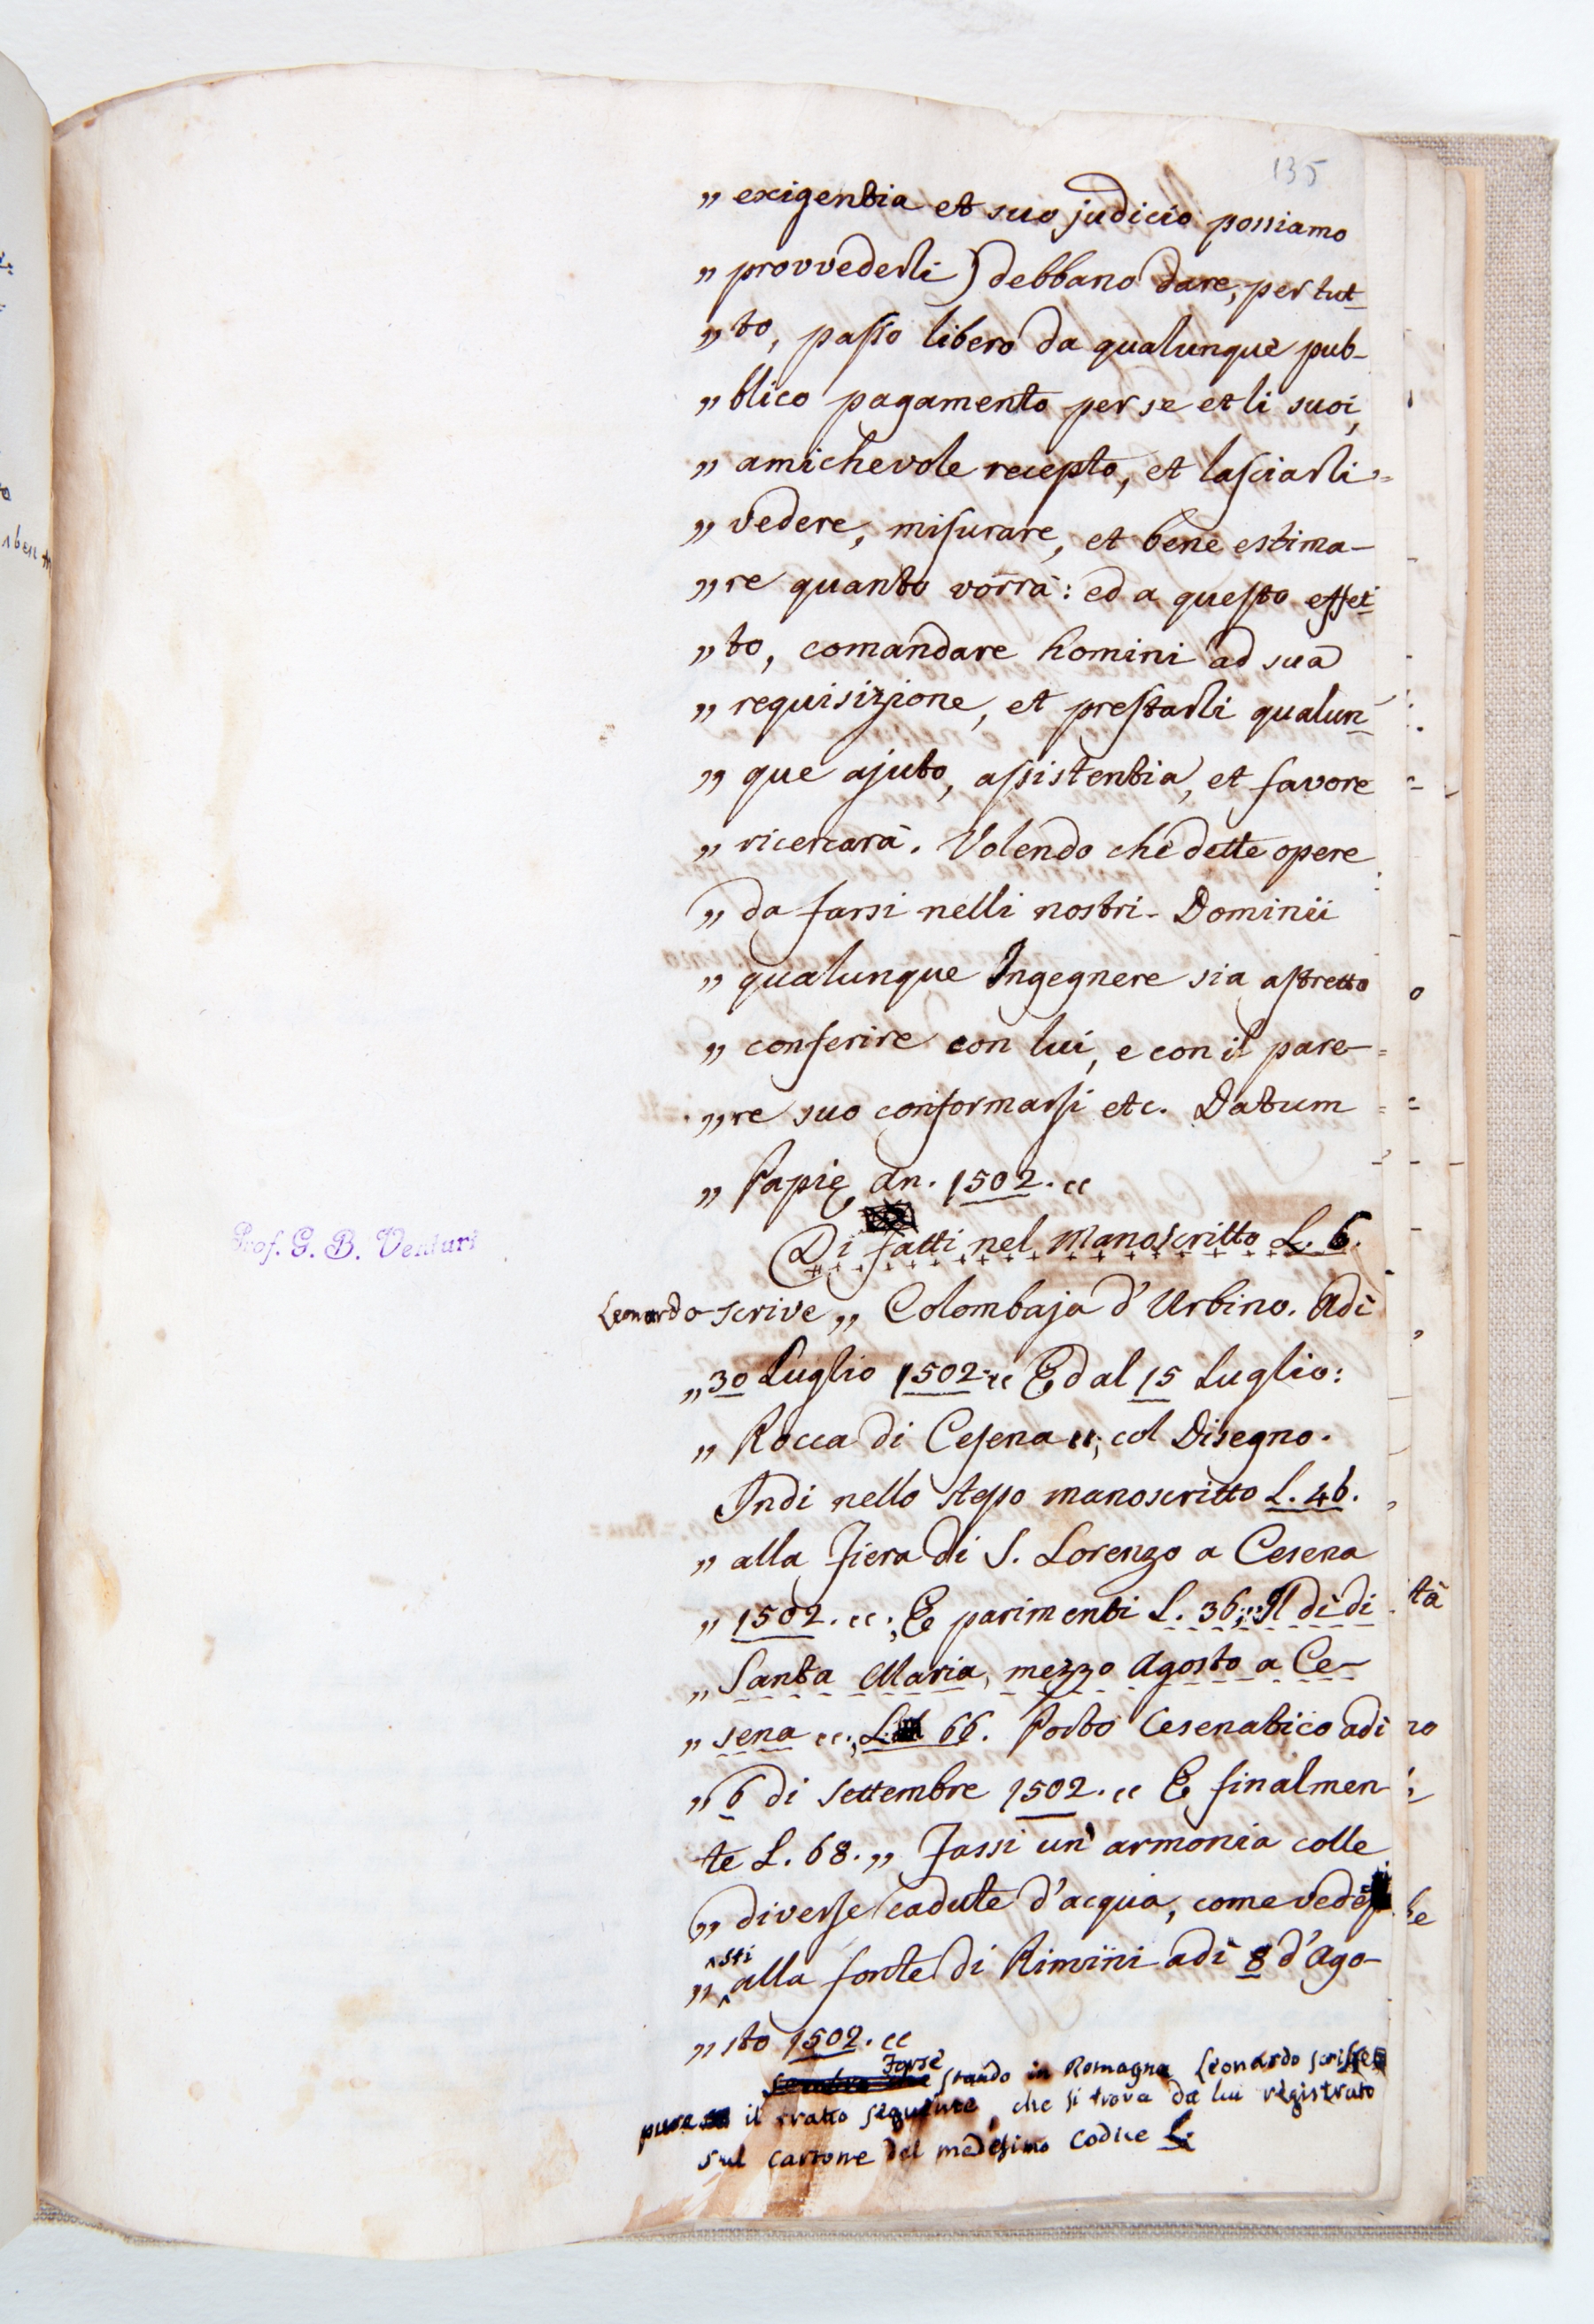 135
„ exigentia et suo judicio possiamo
„ provvederli) debbano dare, per tut-
„ to, passo libero da qualunque pub-
„ blico pagamento per se et li suoi,
„ amichevole recepto, et lasciarli
„ vedere, misurare, et bene estima-
„ re quanto vorrà: ed a questo effet-
„ to, comandare homini ad sua
„ requisizione, et prestarli qualun-
„ que ajuto, assistentia, et favore
„ ricercarà. Volendo che dette opere
„ da farsi nelli nostri Dominii
„ qualunque Ingegnere sia astretto
„ conferire con lui, e con il pare-
„ re suo conformarsi etc. Datum
„ Papię, an. 1502. “
Di fatti nel Manoscritto L. 6.
Leonardo scrive „ Colombaja d'Urbino. Adì
„ 30 Luglio 1502 “ E dal 15 Luglio:
„ Rocca di Cesena “; col Disegno.
Indi nello stesso manoscritto L. 46.
„ alla Fiera di S. Lorenzo a Cesena
„ 1502. “; E parimenti L. 36; „ Il dì di
„ Santa Maria, mezzo Agosto a Ce-
„ sena “; L. 66. Porto Cesenatico adì
„ 6 di Settembre 1502. “ E finalmen-
te L. 68. „ Fassi un' armonia colle
„ diverse cadute d'acqua, come vede
„ sti alla fonte di Rimini adì 8 d'Ago-
„ sto 1502. “
Forse stando in Romagna Leonardo scrisse
pure il tratto seguente, che si trova da lui registrato
sul cartone del medesimo Codice L.
Prof. G. B. Venturi